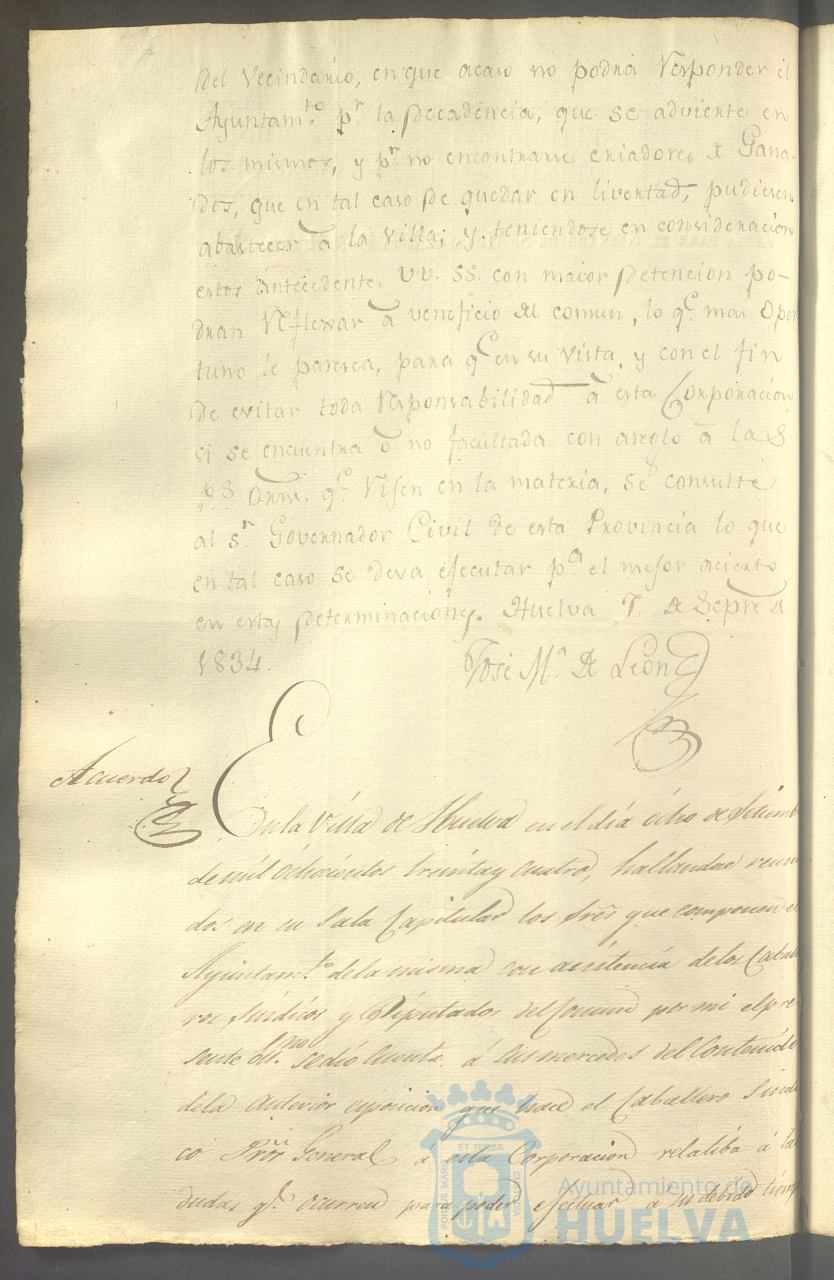 del Vecindario, en que acaso no podria responder el
Ayuntam.to p.r la decadencia, que se advierte en
los mismos, y p.r no encontrarse criadores de Gana-
dos, que en tal caso de quedar en livertad, pudiesen
abastecer à la villa; y teniendose en consideracion
estos antecedentes VV. SS. con maior detencion po-
dran reflexar à veneficio del comun, lo q.e mas opor
tuno le paresca, para q.e en su vista, y con el fin
de evitar toda responsabilidad à esta Corporacion
si se encuentra ò no facultada con areglo à la
orns. q.e rijen en la materia, se consulte
al S.r Governador Civil de esta Provincia lo que
en tal caso se deva ejecutar p.a el mejor acierto
en estas determinaciones. Huelva 7. de Sepre de
1834.
José M.a de Leon
Acuerdo
En la Villa de Huelva en el dia ócho de Setiemb
de mil óchocientos treinta y cuatro, hallandose reuni
dos en su Sala Capitular los Sres que componen el
Ayuntam.to de la misma con asistencia de los Caballe
ros Sindicos y Diputados del Comun por mi el pre
sente Ss.no se dió cuenta á sus mercedes del contenido
de la anterior esposicion que hace el Caballero Sindi
co Pror General á esta Corporacion relatiba á las
dudas q.e ocurren para poder efectuar á su debido tiemp
PORTUS MARIS
ET TERRAE
CUSTODIA
Ayuntamiento de
HUELVA